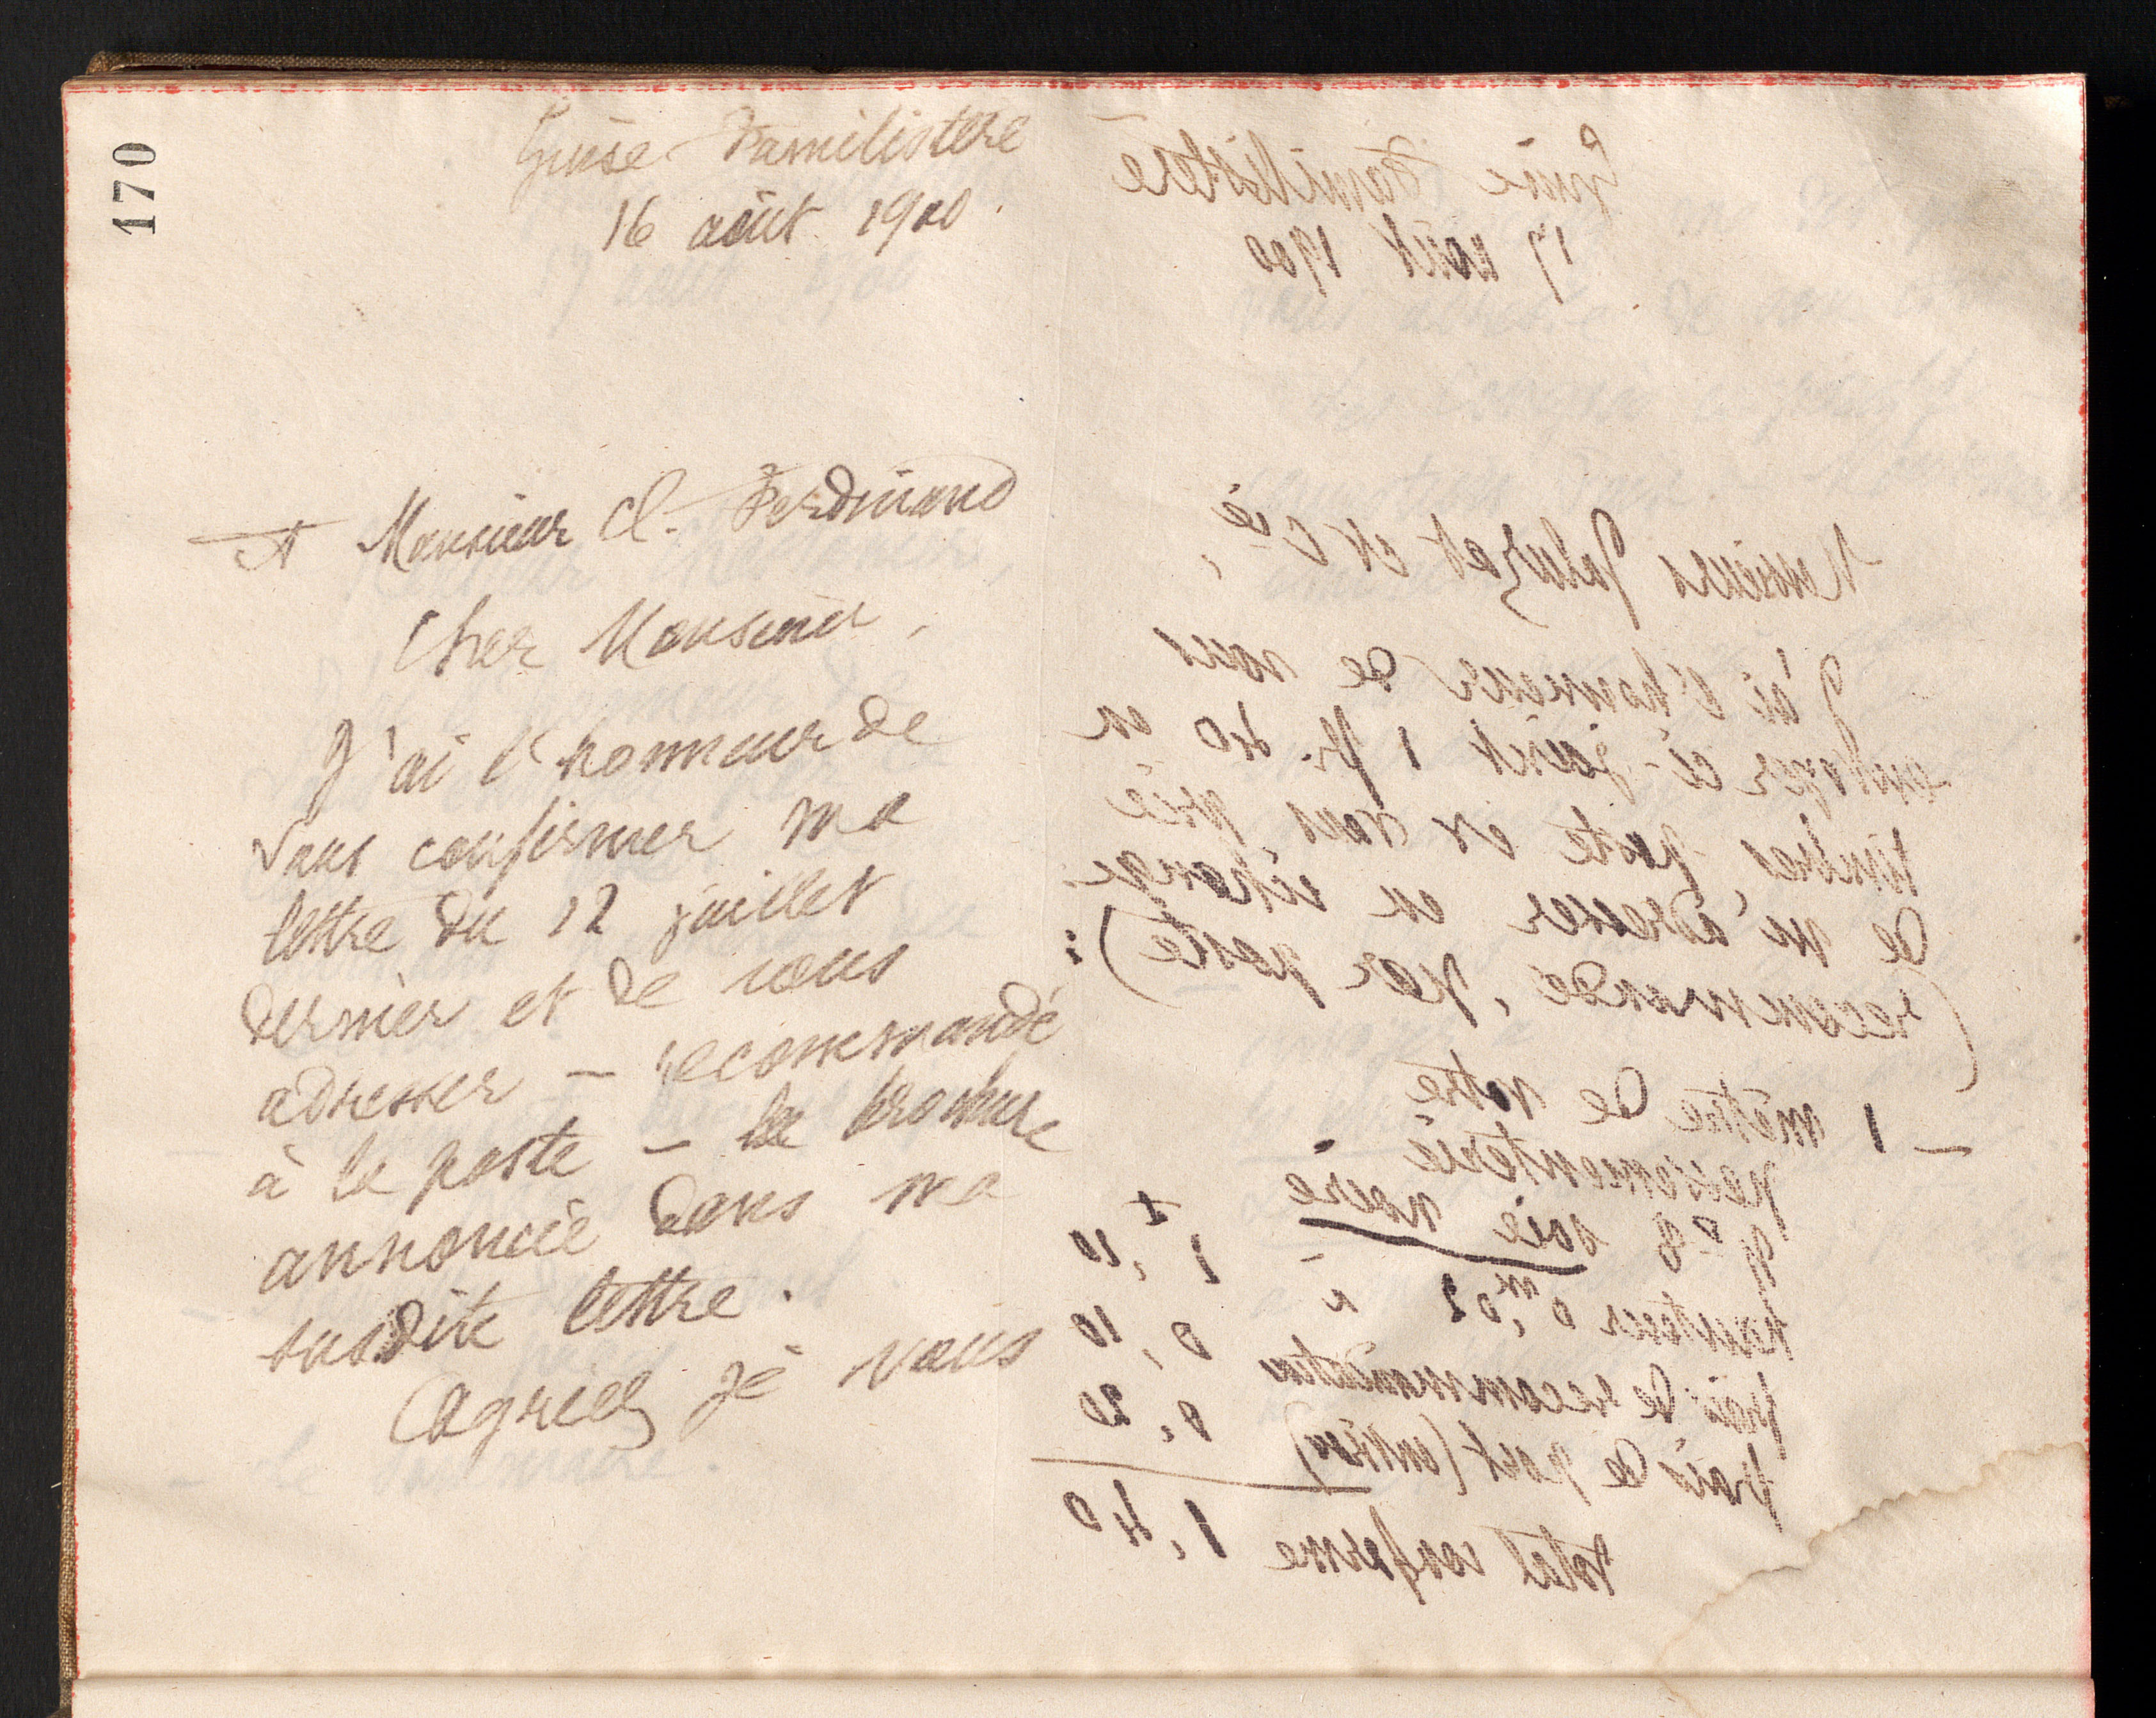 170
Guise Familistère
16 août 1900.
A Monsieur A. Ferdinand
Cher Monsieur,
J'ai l'honneur de
vous confirmer ma
lettre du 12 juillet
dernier et de vous
adresser — recommandé
à la poste — la brochure
annoncée dans ma
susdite lettre.
Agréez je vous
Guise Familistère
17 août 1900
Messieurs Jaluzot et Cie,
J'ai l'honneur de vous
envoyer ci-joint 1 fr. 40 en
timbres poste et vous prie
de m'adresser en échange
(recommandé, par poste) :
— 1 mètre de votre
passementerie
soie noire
hauteur 0,m01 à 1,10
frais de recommandation 0,10
frais de port (environ) 0,20
total conforme 1,40